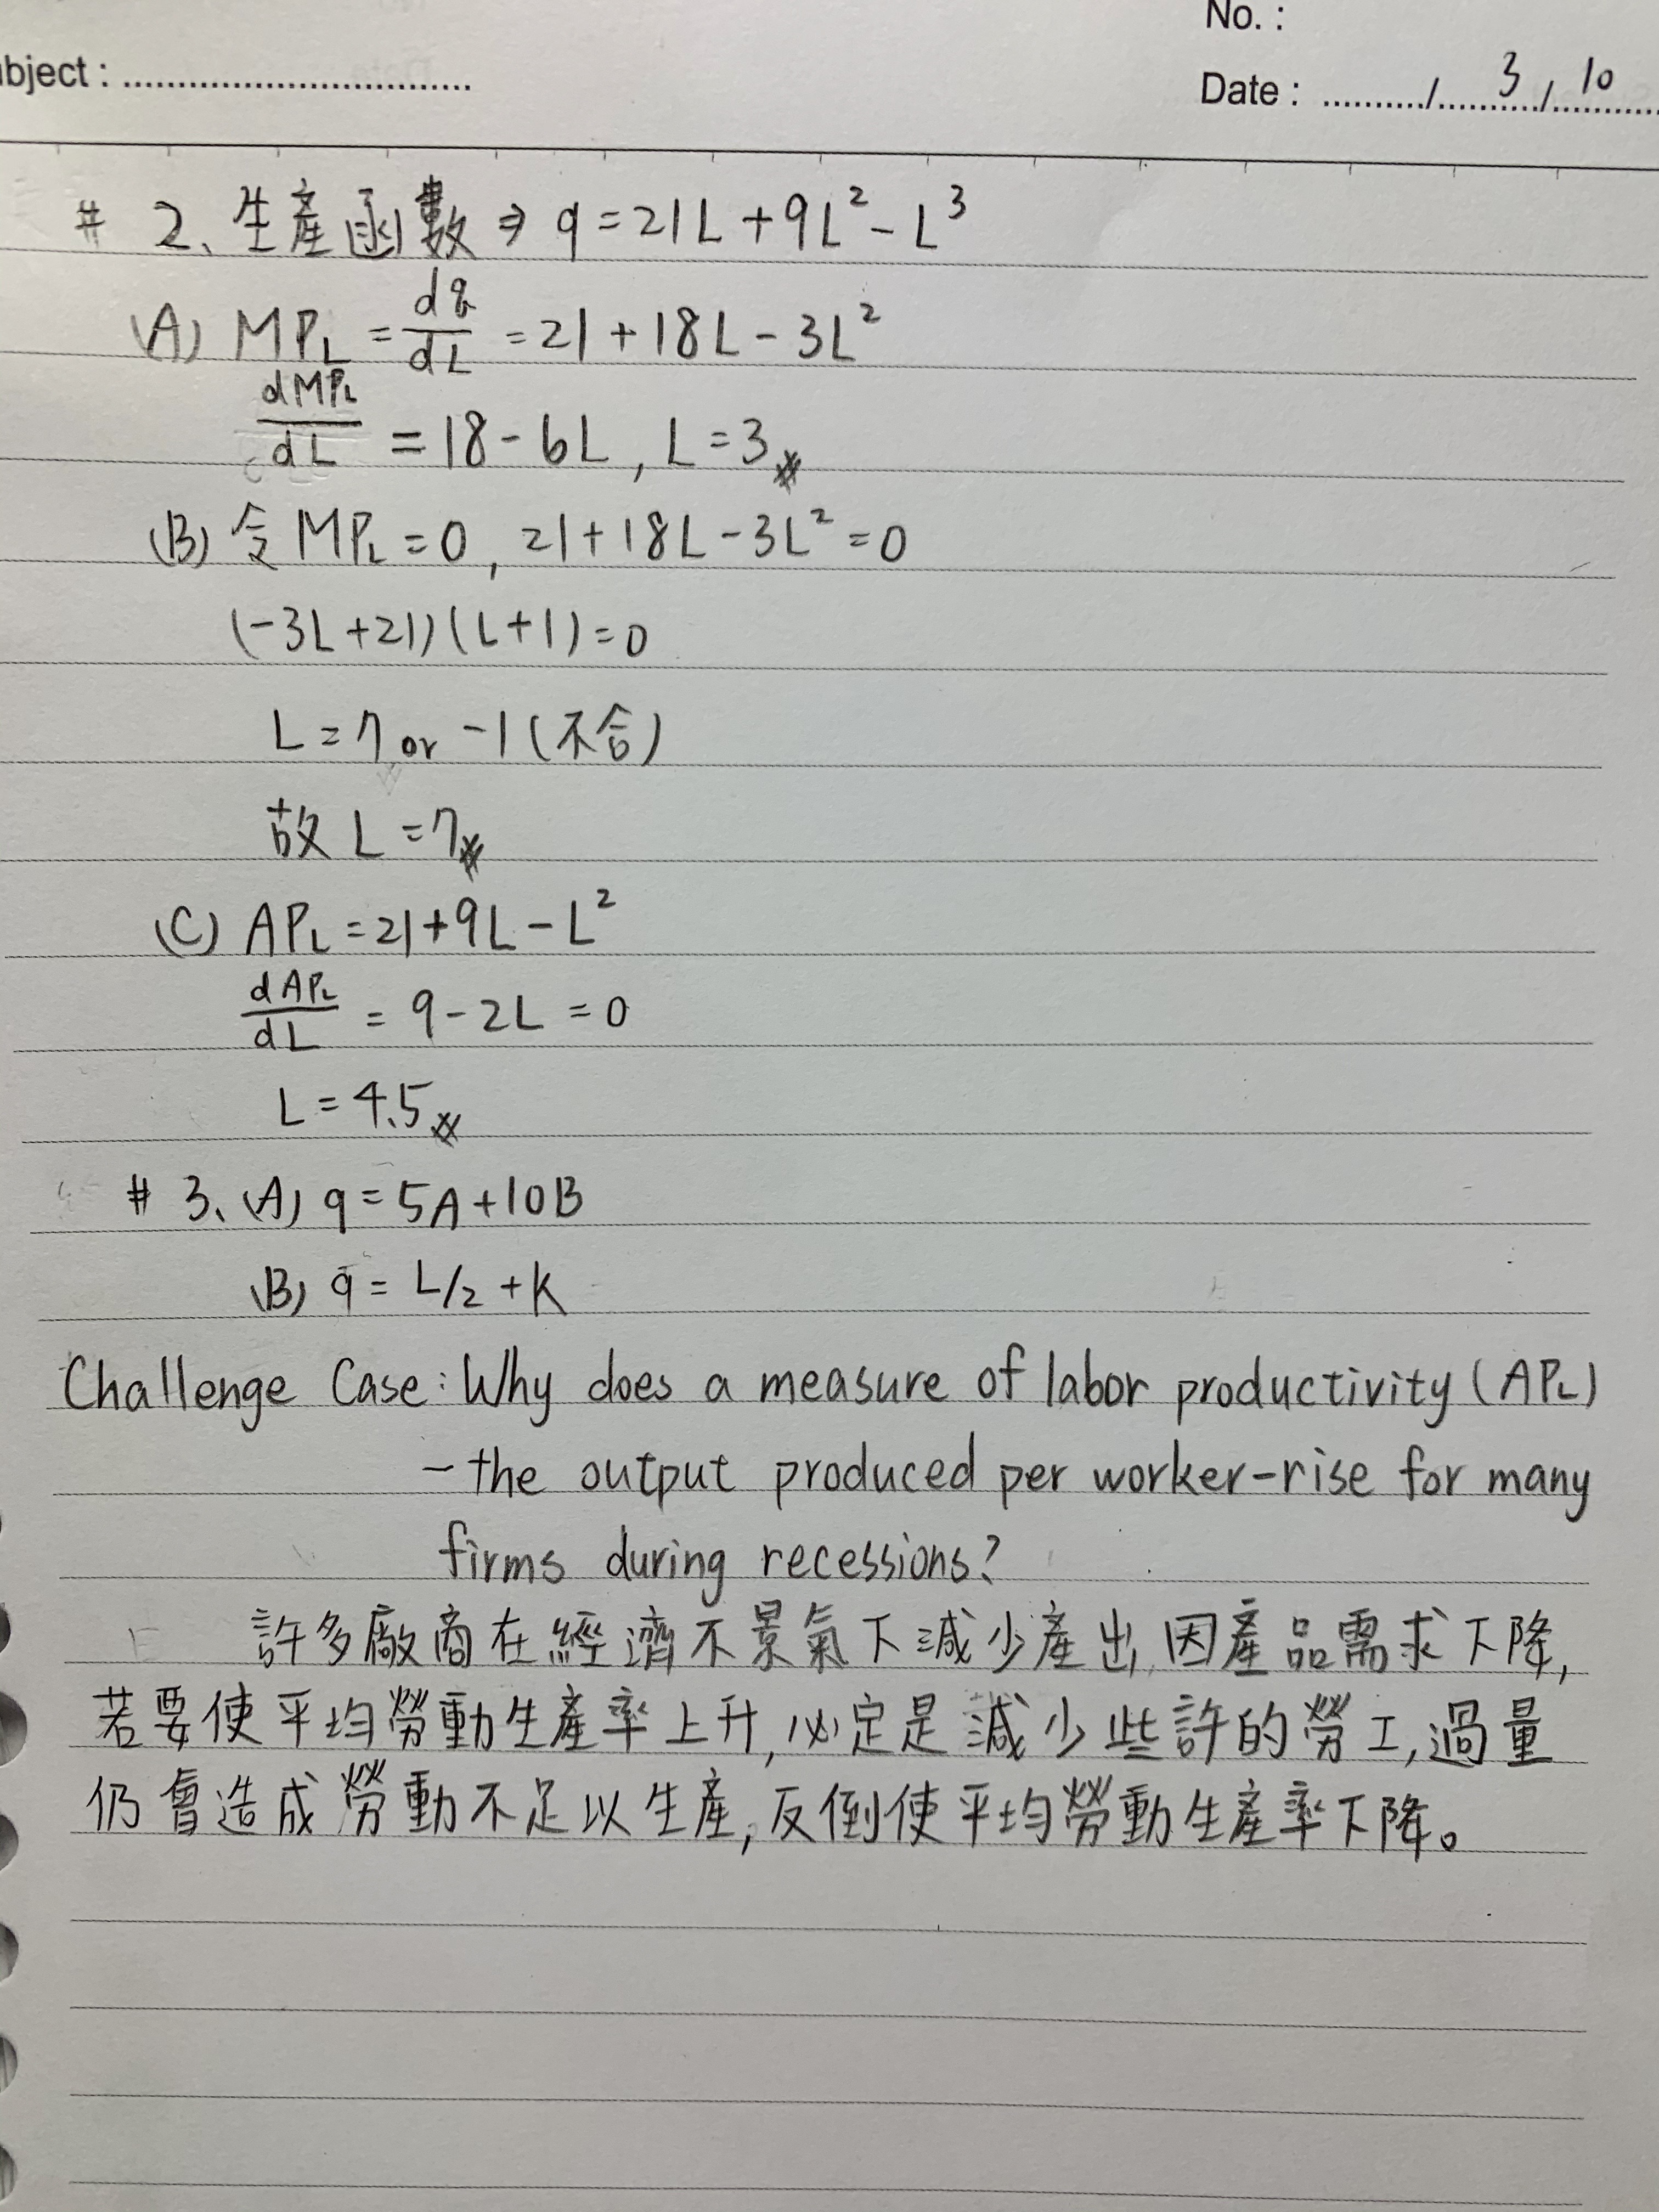 No. :
ubject : ................................
Date : ........../ 3 / 10
# 2、生產函數 ⇒ q = 21L + 9L² - L³
(A) MP_L = dq/dL = 21 + 18L - 3L²
dMP_L/dL = 18 - 6L , L = 3#
(B) 令 MP_L = 0 , 21 + 18L - 3L² = 0
(-3L + 21)(L + 1) = 0
L = 7 or -1 (不合)
故 L = 7#
(C) AP_L = 21 + 9L - L²
dAP_L/dL = 9 - 2L = 0
L = 4.5#
# 3、(A) q = 5A + 10B
(B) q = L/2 + K
Challenge Case : Why does a measure of labor productivity (AP_L)
- the output produced per worker - rise for many
firms during recessions?
許多廠商在經濟不景氣下減少產出,因產品需求下降,
若要使平均勞動生產率上升,必定是減少些許的勞工,過量
仍會造成勞動不足以生產,反倒使平均勞動生產率下降。